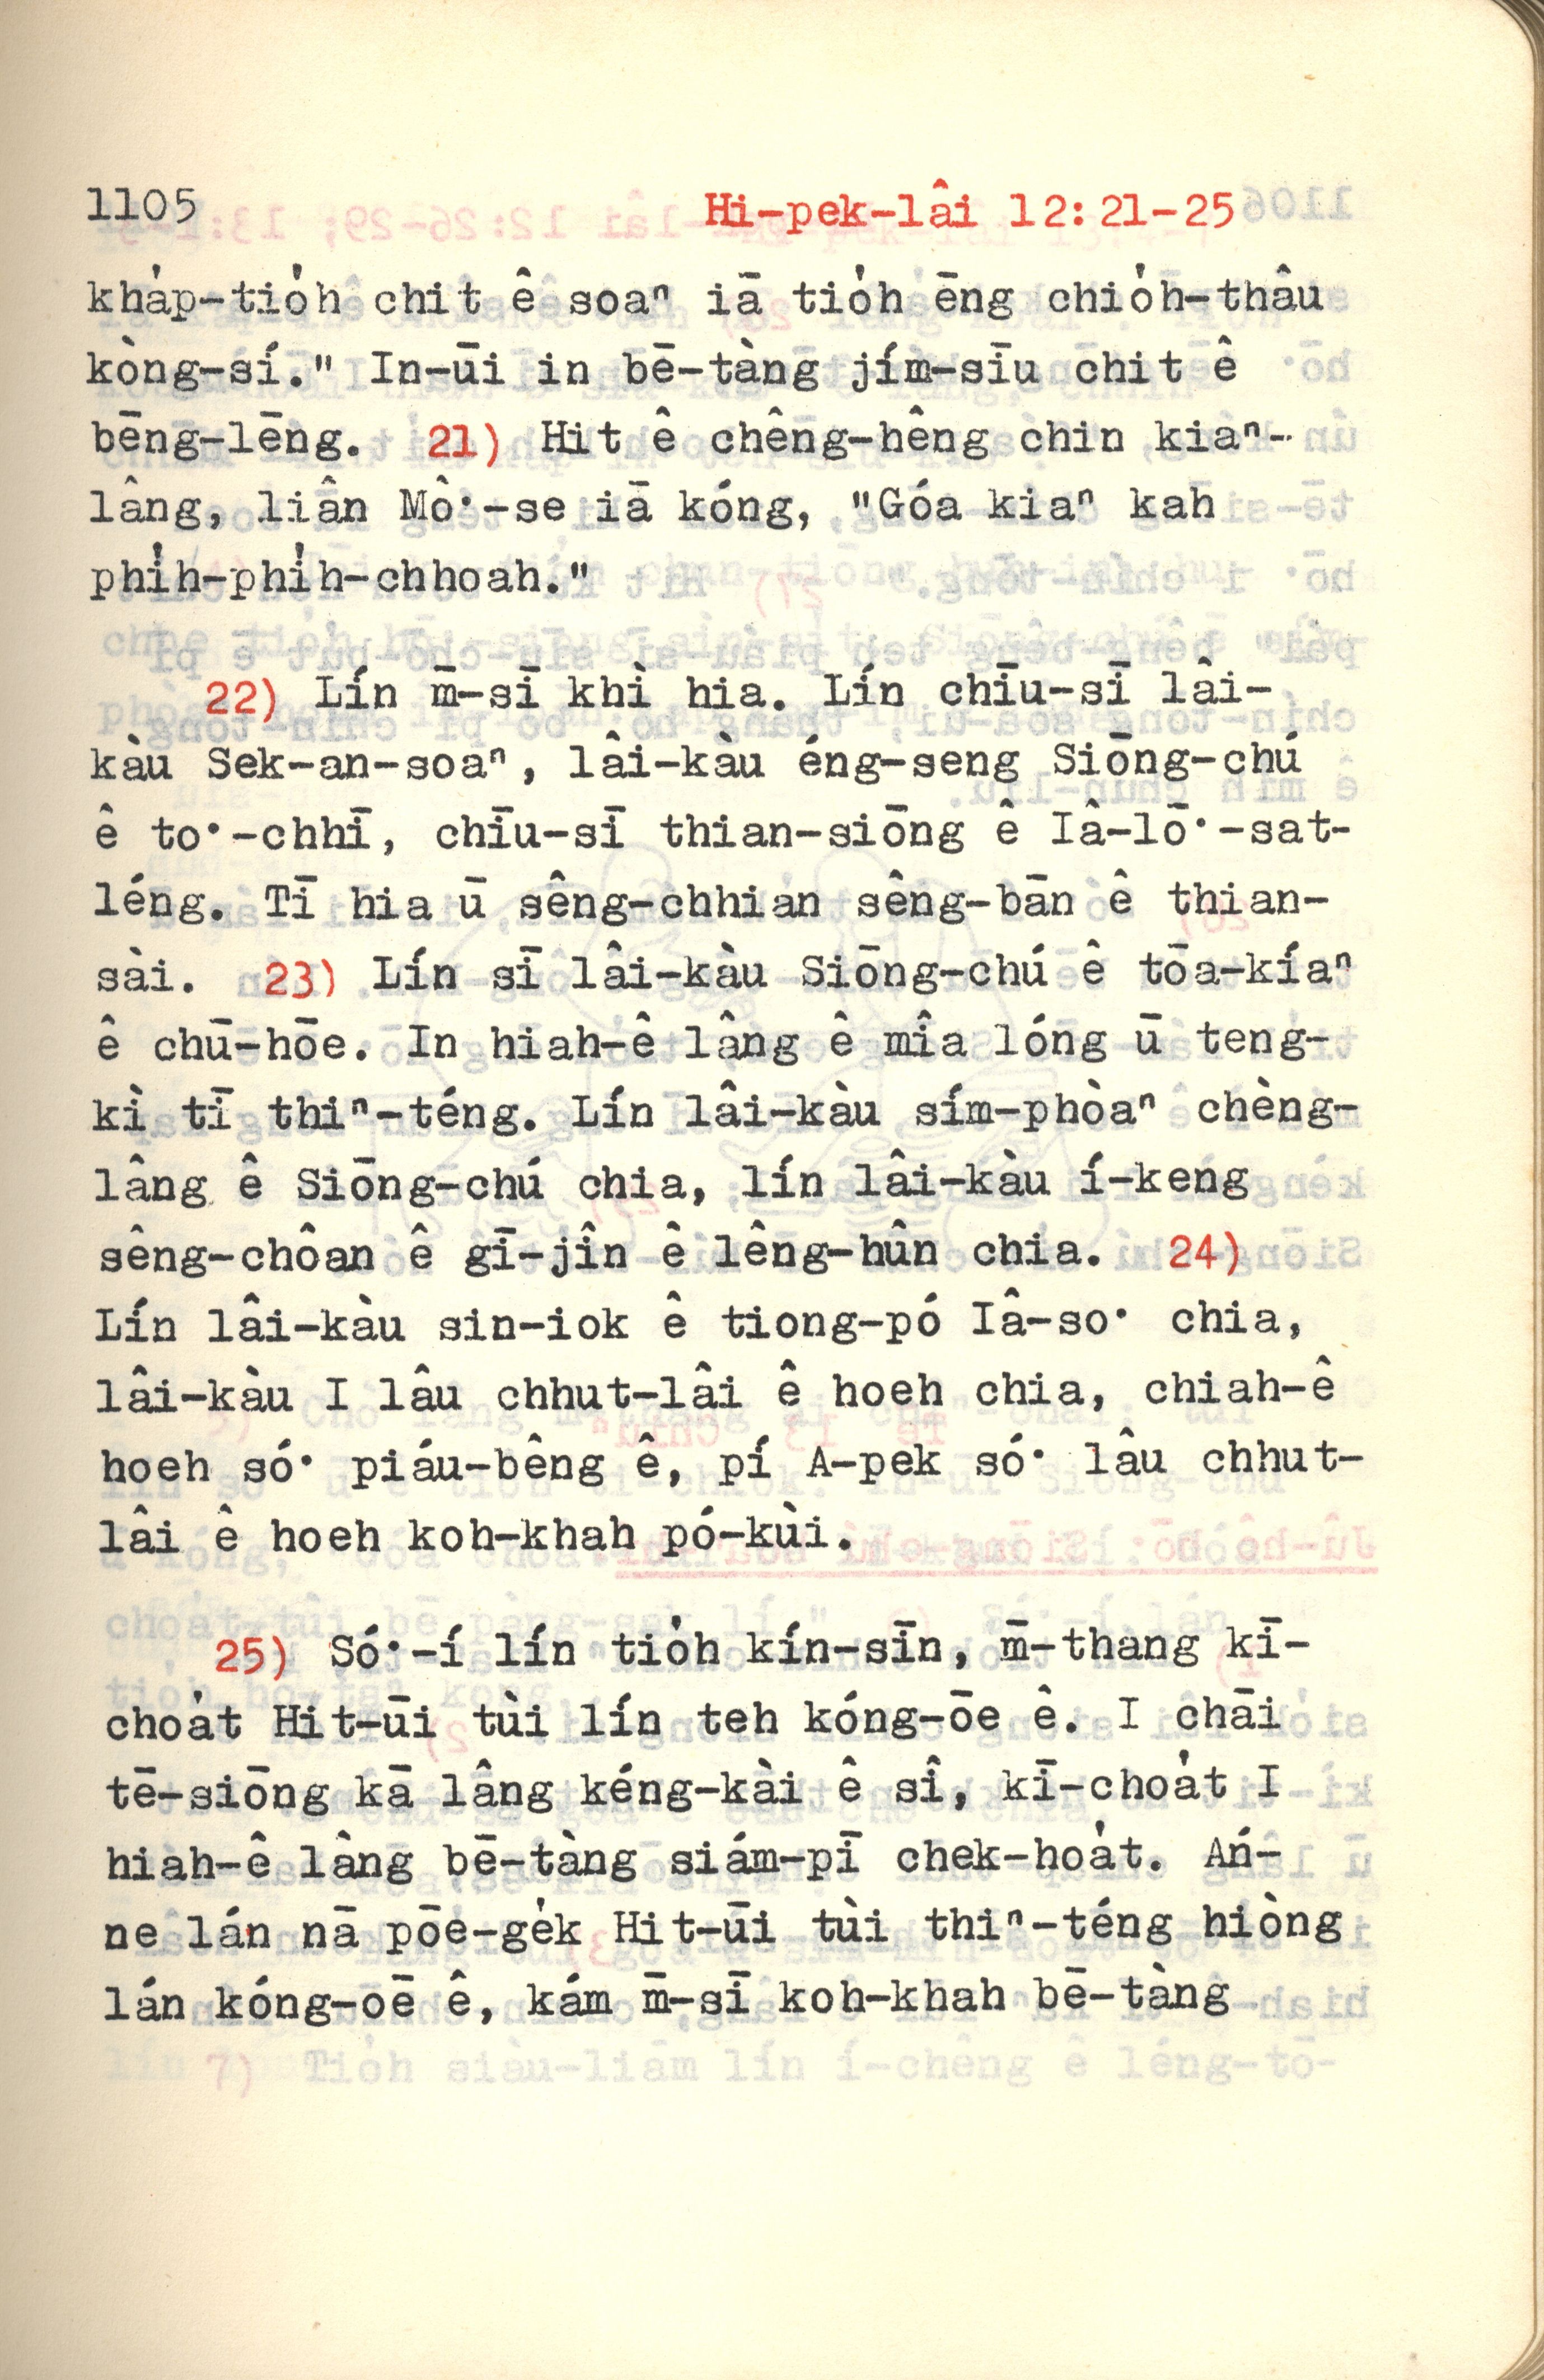 1105 Hi-pek-lâi 12:21-25
kha̍p-tio̍h chit ê soaⁿ iā tio̍h ēng chio̍h-thâu
kòng-sí." In-ūi in bē-tàng jím-sīu chit ê
bēng-lēng. 21) Hit ê chêng-hêng chin kiaⁿ-
lâng, liân Mô͘-se iā kóng, "Góa kiaⁿ kah
phi̍h-phi̍h-chhoah."
22) Lín m̄-sī khì hia. Lín chīu-sī lâi-
kàu Sek-an-soaⁿ, lâi-kàu éng-seng Siōng-chú
ê to͘-chhī, chīu-sī thian-siōng ê Iâ-lō͘-sat-
léng. Tī hia ū sêng-chhian sêng-bān ê thian-
sài. 23) Lín sī lâi-kàu Siōng-chú ê tōa-kíaⁿ
ê chū-hōe. In hiah-ê lâng ê mîa lóng ū teng-
kì tī thiⁿ-téng. Lín lâi-kàu sím-phòaⁿ chèng-
lâng ê Siōng-chú chia, lín lâi-kàu í-keng
sêng-chôan ê gī-jîn ê lêng-hûn chia. 24)
Lín lâi-kàu sin-iok ê tiong-pó Iâ-so͘ chia,
lâi-kàu I lâu chhut-lâi ê hoeh chia, chiah-ê
hoeh só͘ piáu-bêng ê, pí A-pek só͘ lâu chhut-
lâi ê hoeh koh-khah pó-kùi.
25) Só͘-í lín tio̍h kín-sīn, m̄-thang kī-
choa̍t Hit-ūi tùi lín teh kóng-ōe ê. I chāi
tē-siōng kā lâng kéng-kài ê sî, kī-choa̍t I
hiah-ê lâng bē-tàng siám-pī chek-hoa̍t. Ań-
ne lán nā pōe-ge̍k Hit-ūi tùi thiⁿ-téng hiòng
lán kóng-oē ê, kám m̄-sī koh-khah bē-tàng